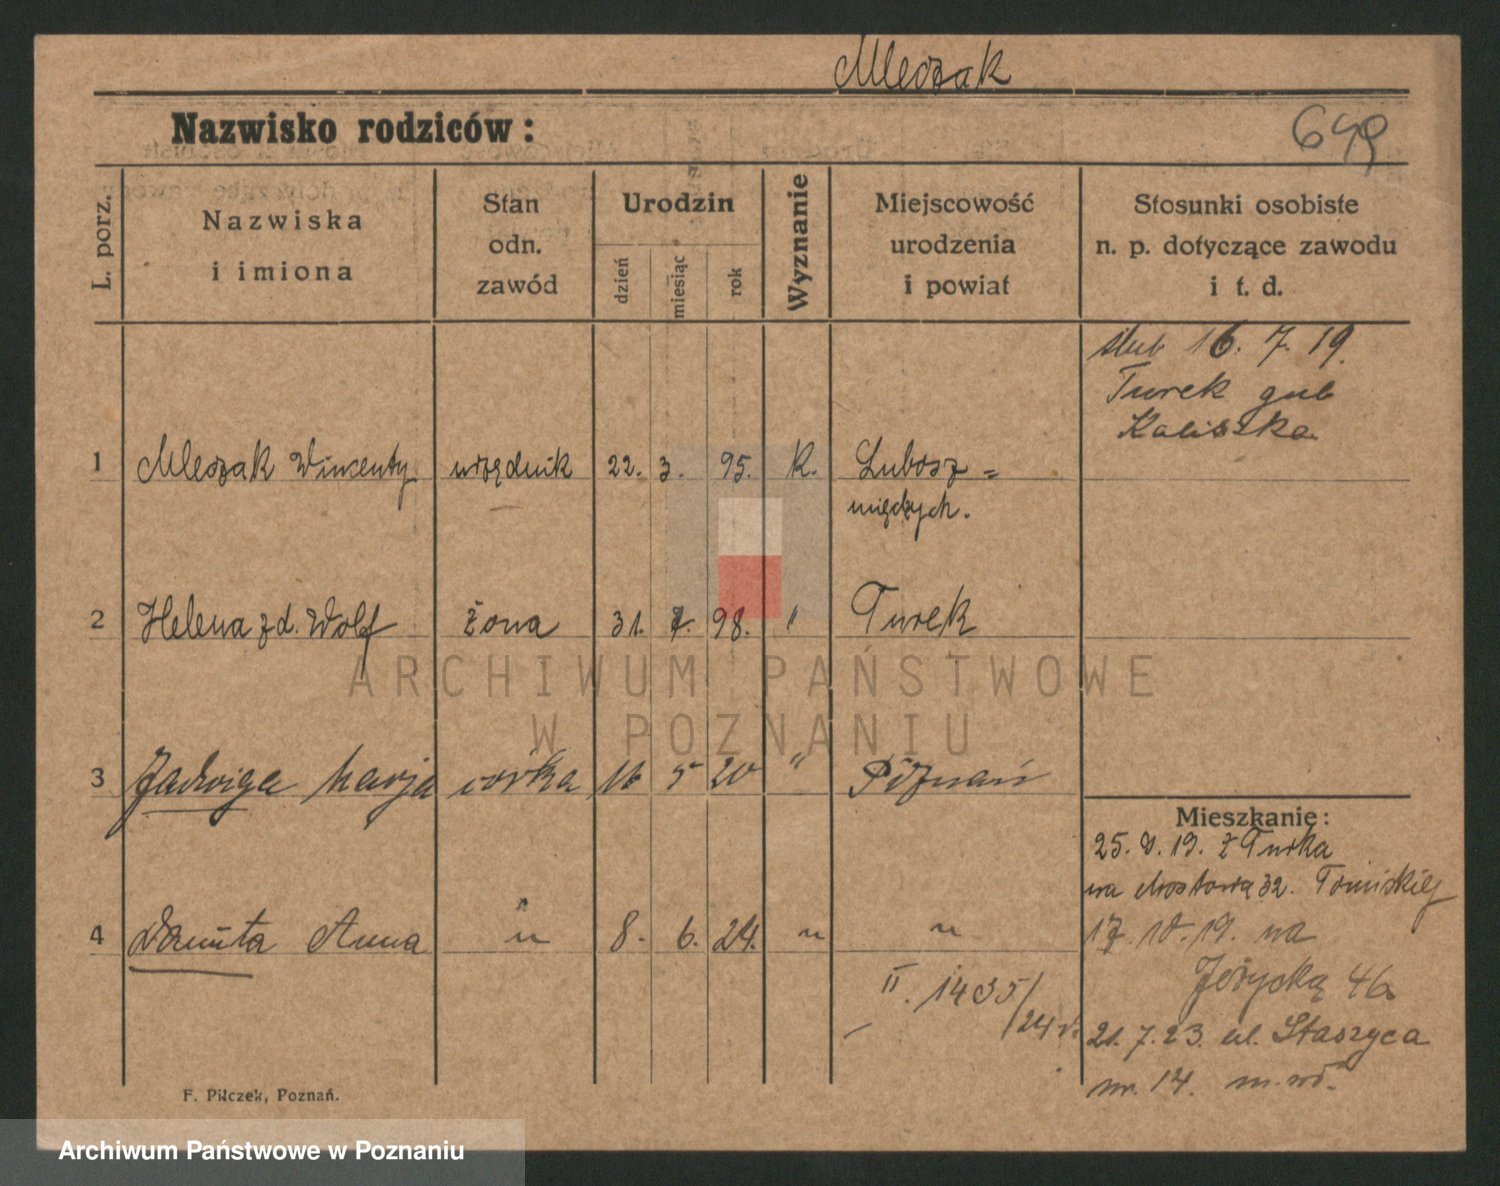 Mleczak
Nazwisko rodziców:
649
L. porz.
Nazwiska
i imiona
Stan
odn.
zawód
Urodzin
dzień
miesiąc
rok
Wyznanie
Miejscowość
urodzenia
i powiat
Stosunki osobiste
n. p. dotyczące zawodu
i t. d.
ślub 16. 7. 19.
Turek gub
Kaliszka
1 Mleczak Wincenty urzędnik 22. 3. 95. K. Lubosz =
międzych.
2 Helena z d. Wolf żona 31. 7. 98. " Turek
ARCHIWUM PAŃSTWOWE
W POZNANIU
3 Jadwiga Marja córka 16 5 20 " Poznań
Mieszkanie:
25. 9. 19. z Turka
na Mostową 32.
4 Danuta Anna " 8. 6. 24. " "
17. 10. 19. na
Jeżycką 46
II. 1435/24
21. 7. 23. ul. Staszyca
nr. 14.
F. Pilczek, Poznań.
Archiwum Państwowe w Poznaniu